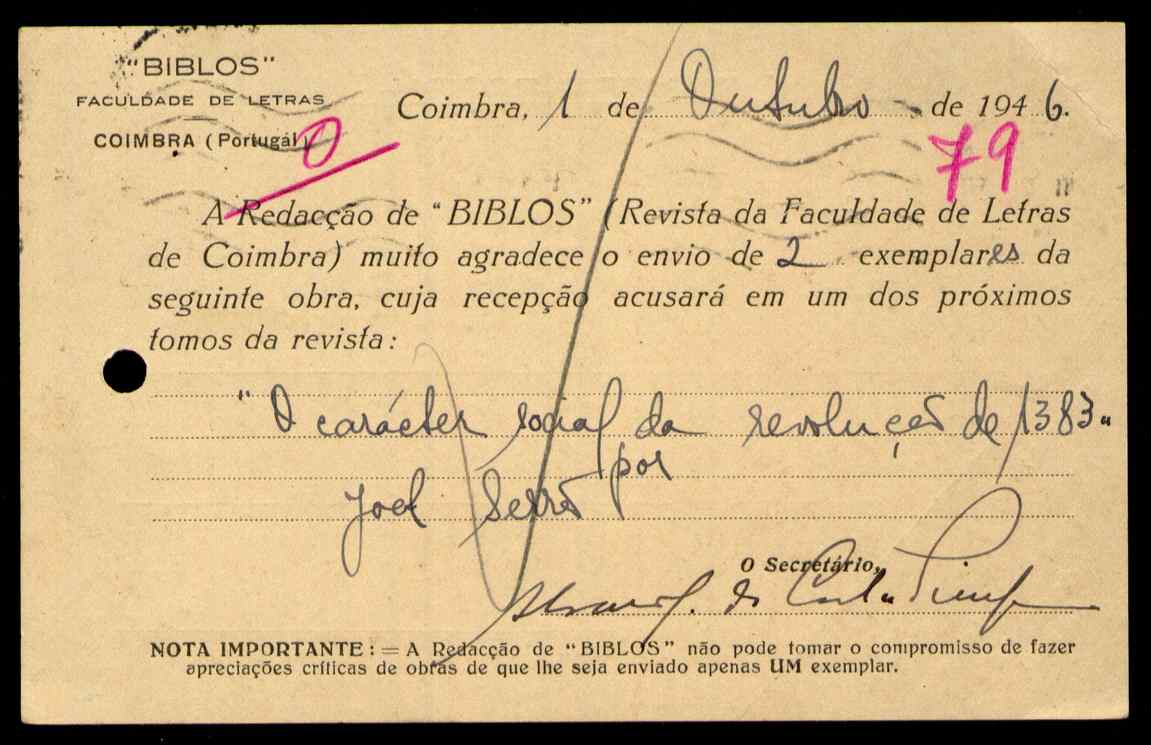 "BIBLOS"
FACULDADE DE LETRAS
COIMBRA (Portugal)
0
Coimbra, 1 de Outubro de 1946.
79
A Redacção de "BIBLOS" (Revista da Faculdade de Letras
de Coimbra) muito agradece o envio de 2 exemplares da
seguinte obra, cuja recepção acusará em um dos próximos
tomos da revista:
"O carácter social da revolução de 1383"
por
Joel Serrão
O Secretário,
da Costa Pimpão
NOTA IMPORTANTE: = A Redacção de "BIBLOS" não pode tomar o compromisso de fazer
apreciações críticas de obras de que lhe seja enviado apenas UM exemplar.